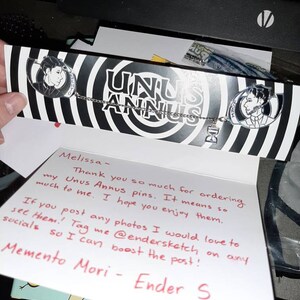 UNUS
ANNUS
Melissa-
Thank you so much for ordering
my Unus Annus pins. It means so
much to me. I hope you enjoy them.
If you post any photos I would love to
see them! Tag me @endersketch on any
socials so I can boost the post!
Memento Mori - Ender S